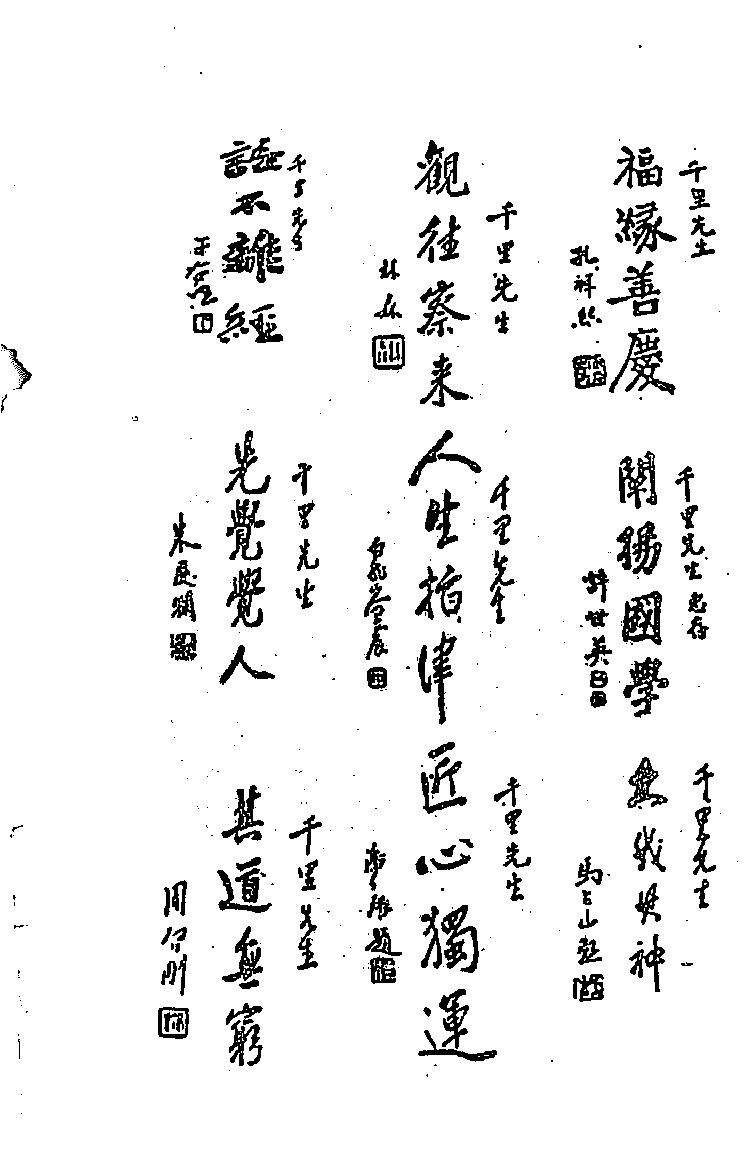 千里先生
福緣善慶
孔祥熙
千里先生惠存
闡揚國學
許世英
千里先生
神
馬占山題
千里先生
觀往察来
林森
千里先生
人生指津
千里先生
匠心獨運
題
千里先生
語不離經
于右任
千里先生
先覺覺人
朱慶瀾
千里先生
其道無窮
周 剛